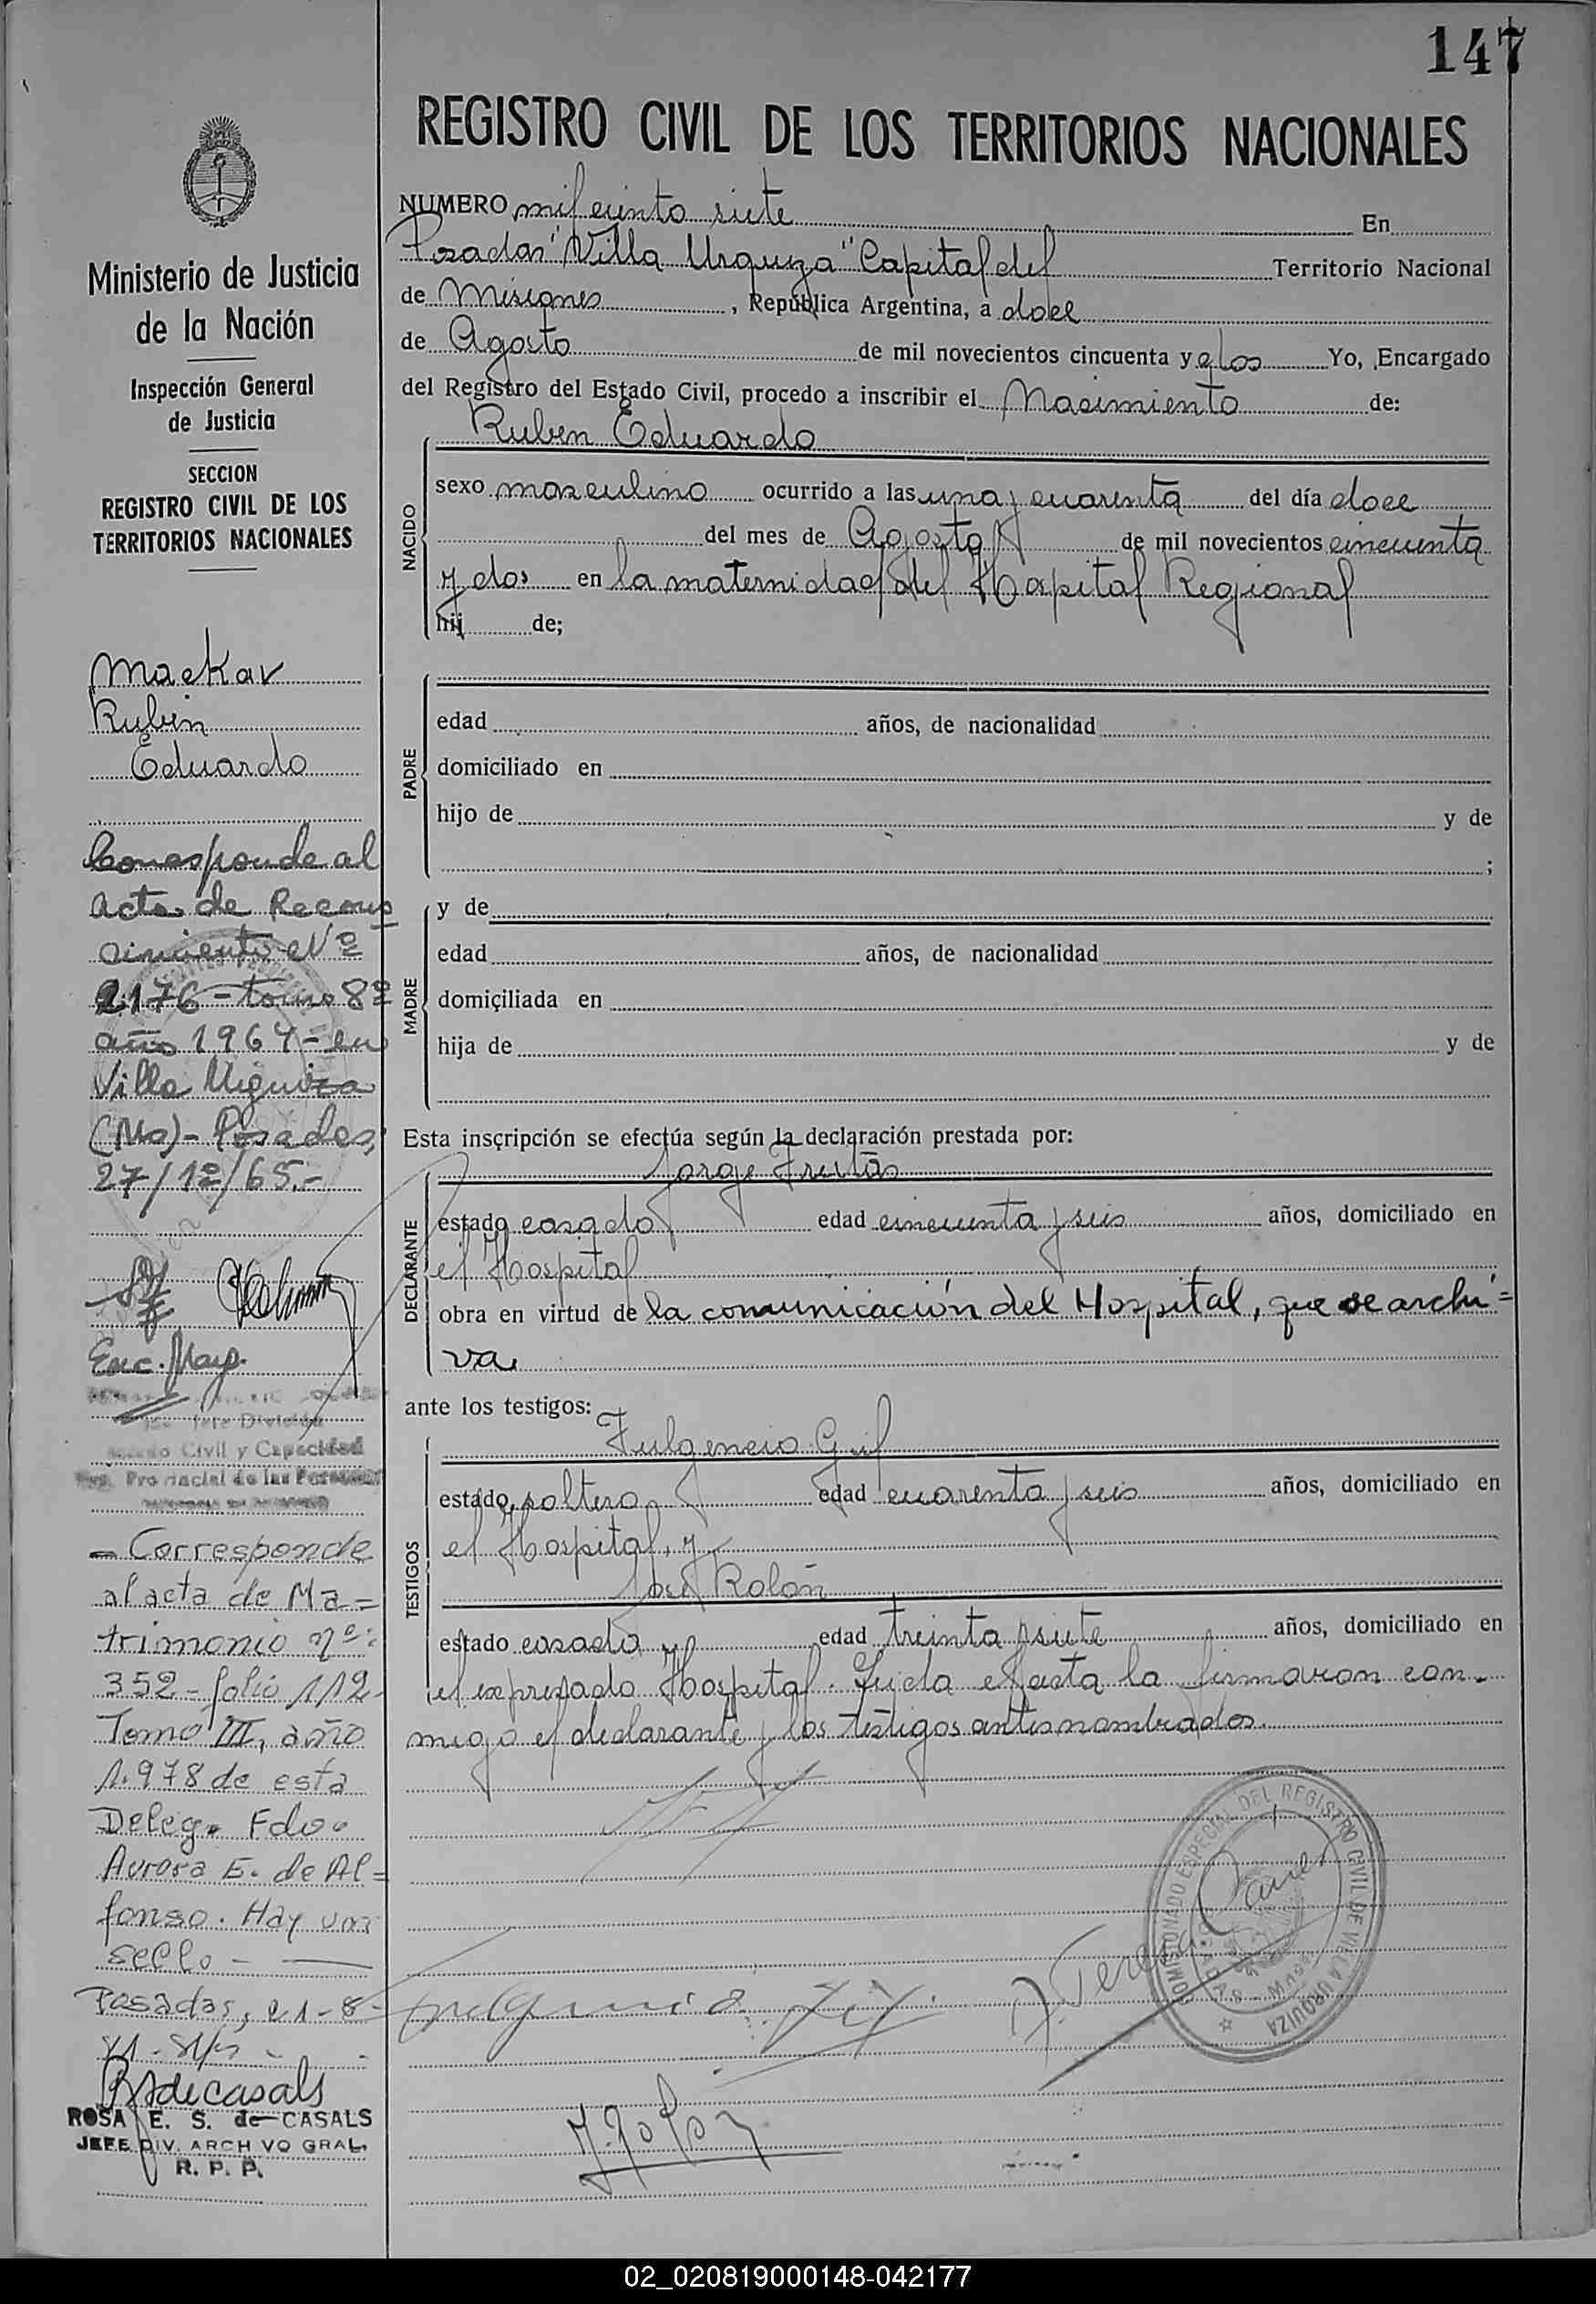 147
REGISTRO CIVIL DE LOS TERRITORIOS NACIONALES
NUMERO mil ciento siete En
Posadas "Villa Urquiza" Capital del Territorio Nacional
de Misiones, República Argentina, a doce
de Agosto de mil novecientos cincuenta y dos Yo, Encargado
del Registro del Estado Civil, procedo a inscribir el Nacimiento de:
NACIDO
Ruben Eduardo
sexo masculino ocurrido a las una y cuarenta del día doce
del mes de Agosto de mil novecientos cincuenta
y dos en la maternidad del Hospital Regional
hij de;
PADRE
edad años, de nacionalidad
domiciliado en
hijo de y de
;
MADRE
y de
edad años, de nacionalidad
domiciliada en
hija de y de
Esta inscripción se efectúa según la declaración prestada por:
DECLARANTE
Jorge Freitas
estado casado edad cincuenta y seis años, domiciliado en
el Hospital
obra en virtud de la comunicación del Hospital, que se archi=
va.
ante los testigos:
TESTIGOS
Fulgencio Gil
estado soltero edad cuarenta y seis años, domiciliado en
el Hospital, y
José Rolón
estado casado edad treinta y siete años, domiciliado en
el expresado Hospital. Leida el acta la firmaron con-
migo el declarante y los testigos antes nombrados.
COMISIONADO ESPECIAL DEL REGISTRO CIVIL DE VILLA URQUIZA
Fulgencio Gil
J. Rolon
Ministerio de Justicia
de la Nación
Inspección General
de Justicia
SECCION
REGISTRO CIVIL DE LOS
TERRITORIOS NACIONALES
Mackav
Rubén
Eduardo
Corresponde al
acta de Recono
cimiento Nº
2176 - tomo 8º
año 1964 - en
Villa Urquiza
(Ms) - Posadas,
27/1º/65.-
Enc. Mayp.
Jefe División
Estado Civil y Capacidad
Reg. Provincial de las Personas
- Corresponde
al acta de Ma=
trimonio nº:
352 - folio 112-
Tomo III, año
1.978 de esta
Deleg. Fdo.
Aurora E. de Al=
fonso. Hay un
sello -
Posadas, 21-8-
RSdecasals
ROSA E. S. de CASALS
JEFE DIV. ARCHIVO GRAL.
R. P. P.
02_020819000148-042177